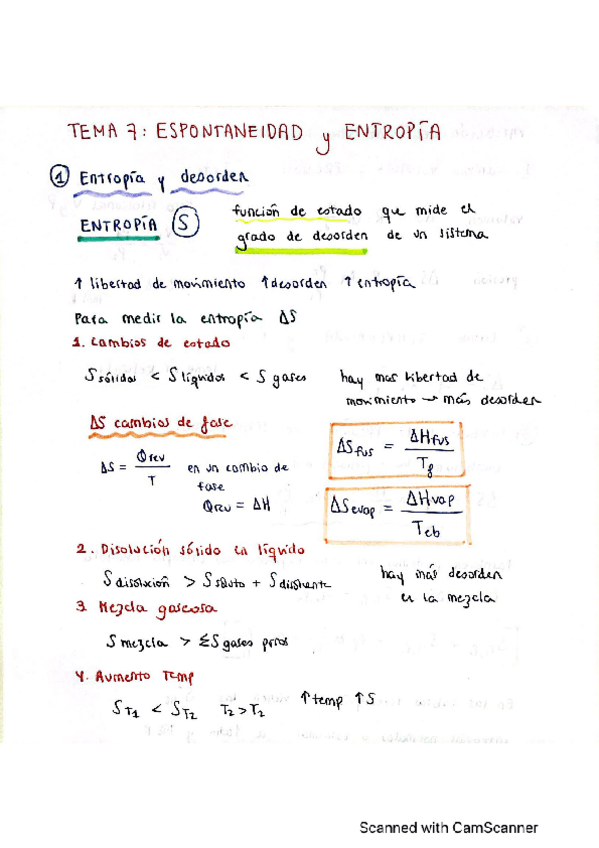 TEMA 7: ESPONTANEIDAD y ENTROPÍA
① Entropía y desorden
ENTROPÍA (S) función de estado que mide el
grado de desorden de un sistema
↑ libertad de movimiento ↑desorden ↑entropía
Para medir la entropía ΔS
1. Cambios de estado
Ssólidos < Slíquidos < S gases hay mas libertad de
movimiento → más desorden
ΔS cambios de fase
ΔS = Qrev / T en un cambio de
fase
Qrev = ΔH
ΔSfus = ΔHfus / Tf
ΔSevap = ΔHvap / Teb
2. Disolución sólido en líquido
Sdisolución > Ssoluto + Sdisolvente hay más desorden
en la mezcla
3. Mezcla gaseosa
Smezcla > ΣSgases puros
4. Aumento Temp
ST1 < ST2 T2>T2 ↑temp ↑S
Scanned with CamScanner